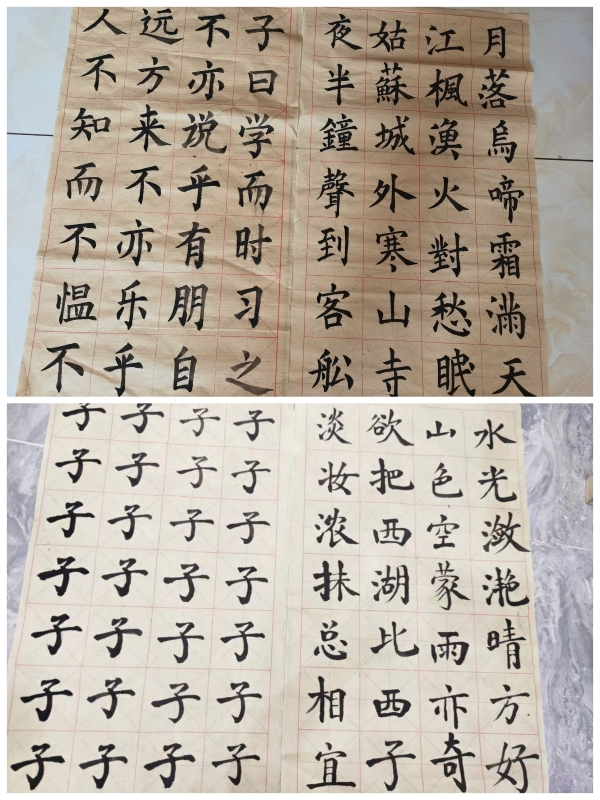 月落烏啼霜滿天
江楓漁火對愁眠
姑蘇城外寒山寺
夜半鐘聲到客舩
子曰学而时习之
不亦说乎有朋自
远方来不亦乐乎
人不知而不愠不
水光潋滟晴方好
山色空蒙雨亦奇
欲把西湖比西子
淡妆浓抹总相宜
子子子子子子子
子子子子子子子
子子子子子子子
子子子子子子子